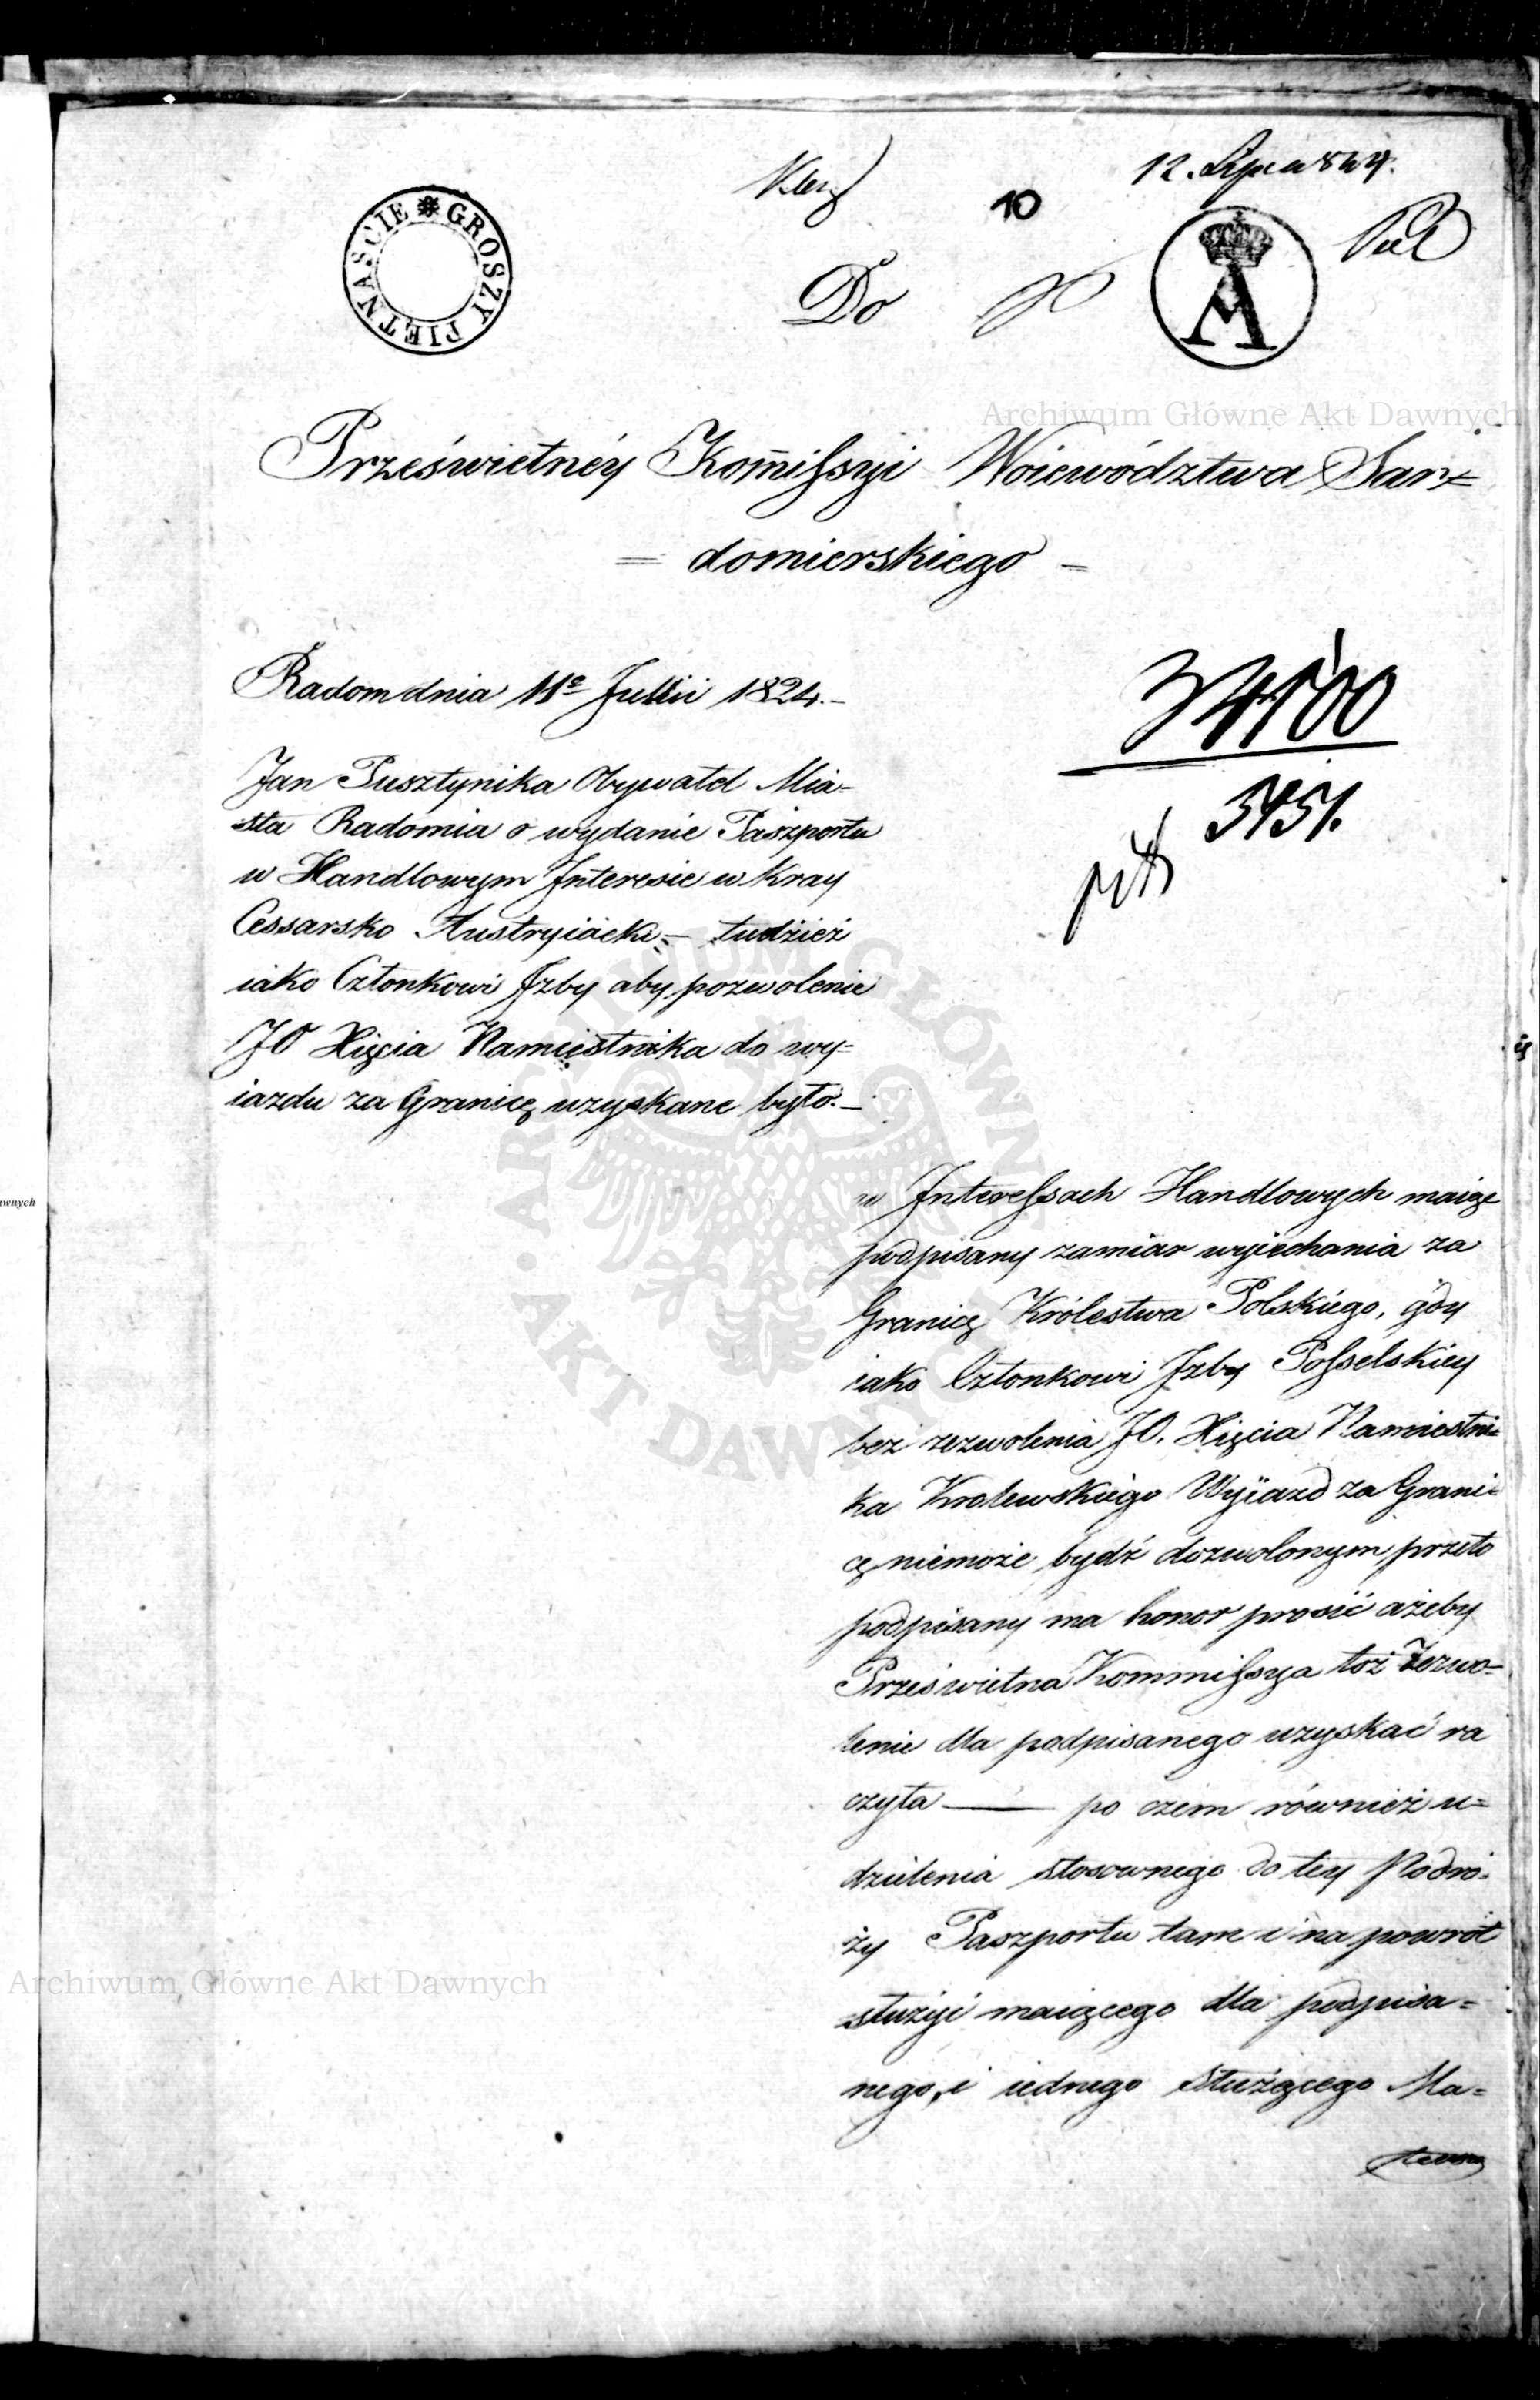 12. Lipca 824.
10
GROSZY PIĘTNAŚCIE
A
Do
Archiwum Główne Akt Dawnych
Prześwietnéy Kom̃issyi Woiewództwa San=
= domierskiego =
Radom dnia 11º Julii 1824.-
34100
5451.
Jan Pusztynika Obywatel Mia-
sta Radomia o wydanie Paszportu
w Handlowym Interesie w Kray
Cessarsko Austryiacki - tudzież
iako Członkowi Izby aby pozwolenie
JO Xięcia Namiestnika do wy=
iazdu za Granicę uzyskane było.-
ARCHIWUM GŁÓWNE AKT DAWNYCH
w Interessach Handlowych maiąc
podpisany zamiar wyiechania za
Granicę Królestwa Polskiego, gdy
iako Członkowi Izby Posselskiey
bez zezwolenia JO. Xięcia Namiestni=
ka Krolewskiego Wyiazd za Grani=
cę niemoże bydź dozwolonym przeto
podpisany ma honor prosić ażeby
Prześwietna Kommissya toż Zezwo=
lenie dla podpisanego uzyskać ra
czyła — po czem również u=
dzielenia stosownego do tey Podró=
ży Paszportu tam i na powrót
służyć maiącego dla podpisa=
nego, i iednego służącego Ma=
Archiwum Główne Akt Dawnych